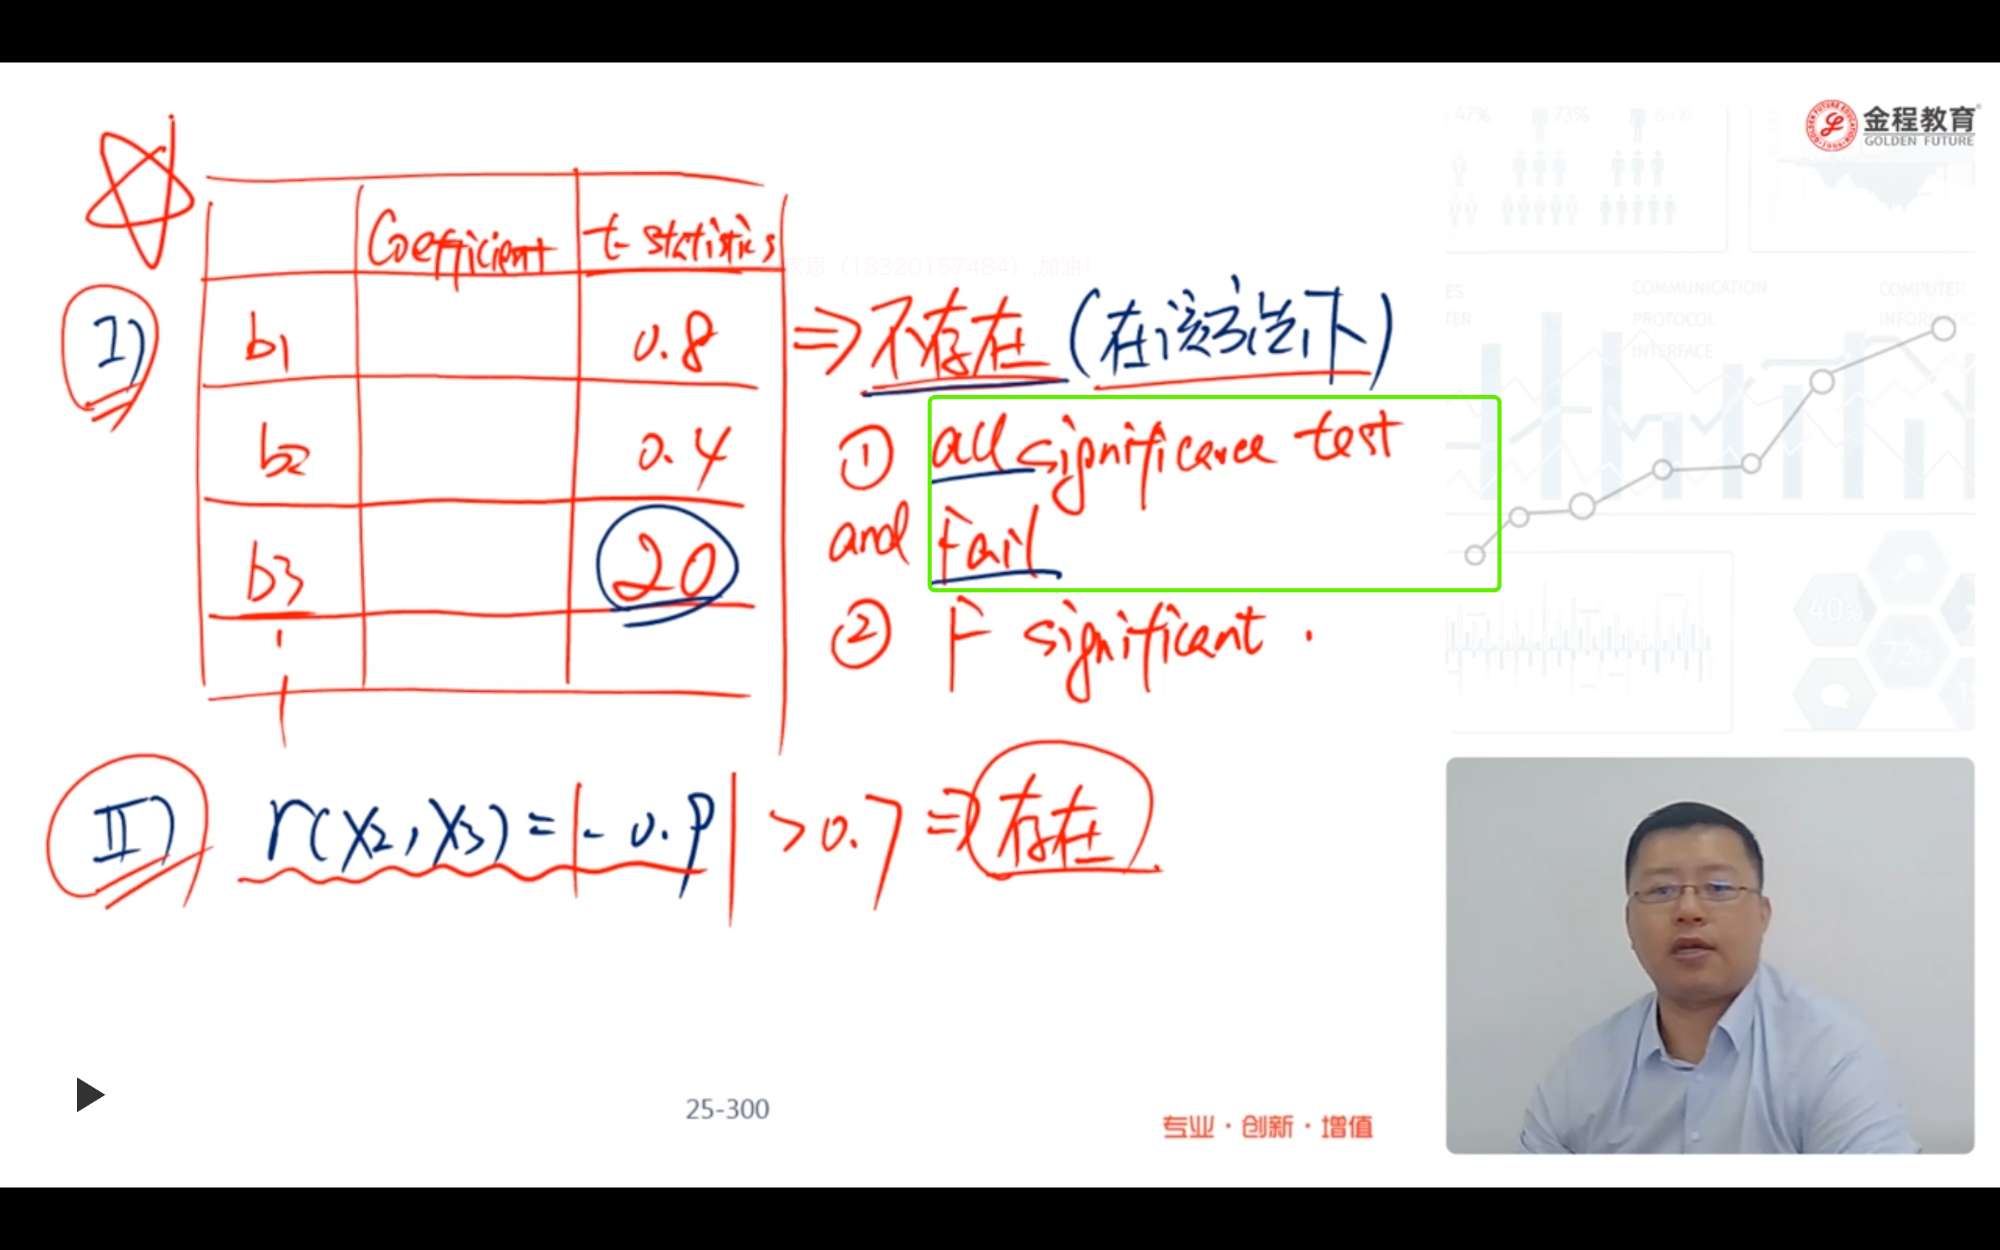 金程教育
GOLDEN FUTURE
Coefficient t-statistics
I) b1 0.8 ⇒ 不存在 (在该方法下)
b2 0.4 ① all significance test
b3 20 and Fail
② F significant.
II) r(X2, X3) = |-0.9| > 0.7 ⇒ 存在
47% 73%
COMMUNICATION
PROTOCOL
INTERFACE
COMPUTER
40%
72%
25-300
专业·创新·增值